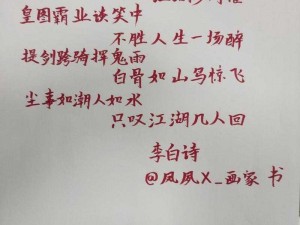 皇图霸业谈笑中
不胜人生一场醉
提剑跨骑挥鬼雨
白骨如山鸟惊飞
尘事如潮人如水
只叹江湖几人回
李白诗
@凤夙X_画家 书